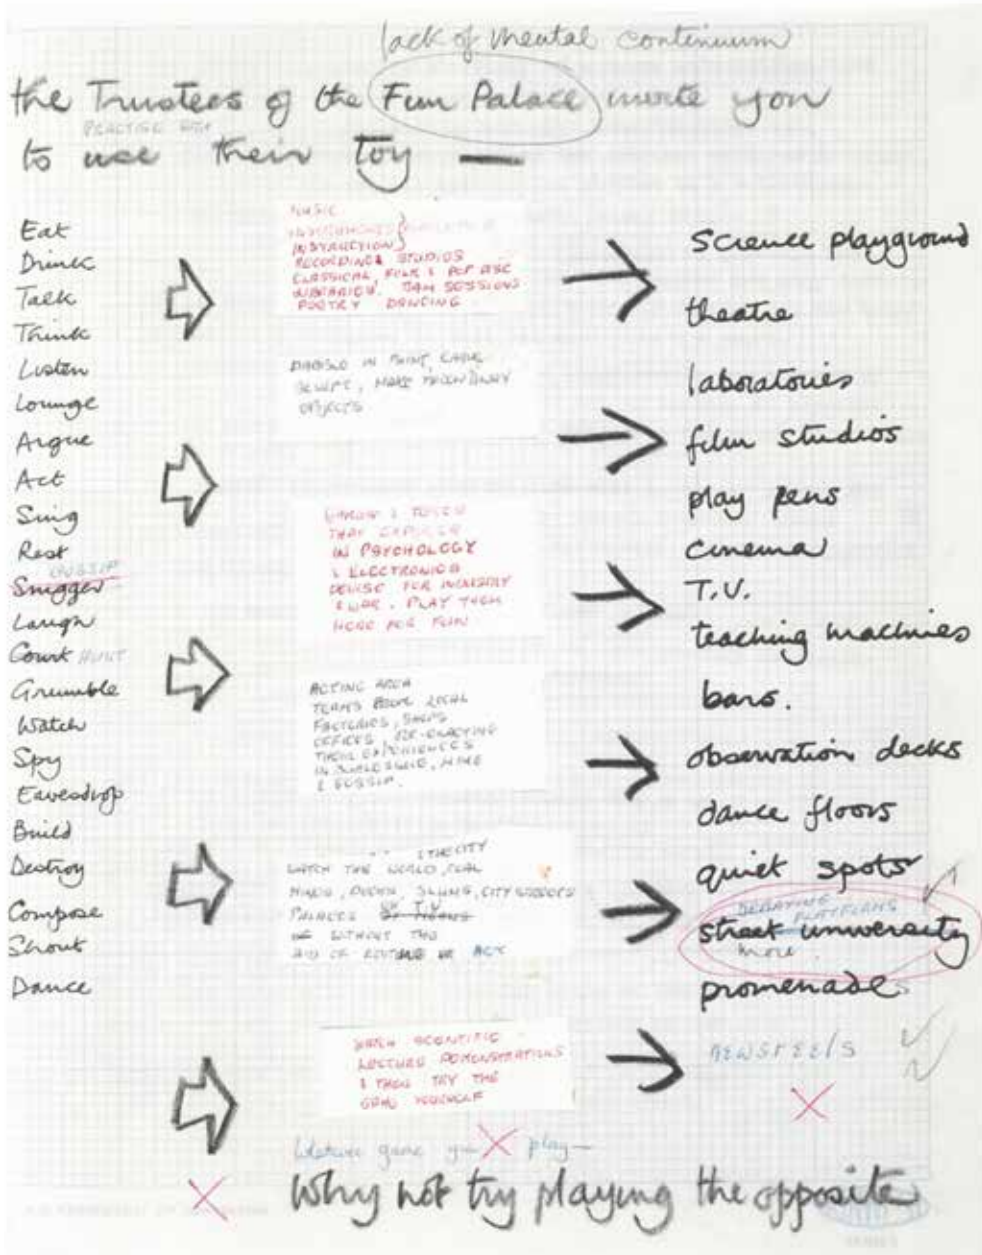 lack of mental continuum
the Trustees of the Fun Palace invite you
PRACTISE WITH
to use their toy —
Eat
Drink
Talk
Think
Listen
Lounge
Argue
Act
Sing
Rest
GOSSIP
Snigger
Laugh
Court HUNT
Grumble
Watch
Spy
Eavesdrop
Build
Destroy
Compose
Shout
Dance
MUSIC
INSTRUCTION)
RECORDING STUDIOS
CLASSICAL, FOLK & POP DISC
LIBRARIES, JAM SESSIONS
POETRY DANCING
DABBLE IN PAINT,
SCULPT, MAKE THROWAWAY
OBJECTS
THAT EXPERTS
IN PSYCHOLOGY
& ELECTRONICS
DEVISE FOR INDUSTRY
& WAR. PLAY THEM
HERE FOR FUN
ACTING AREA
TEAMS FROM LOCAL
FACTORIES, SHOPS
OFFICES RE-ENACTING
THEIR EXPERIENCES
IN BURLESQUE, MIME
& GOSSIP.
& THE CITY
WATCH THE WORLD, COAL
MINES, DOCKS, SLUMS, CITY
PALACES T.V.
OR WITHOUT THE
AID OF
WATCH SCIENTIFIC
LECTURE DEMONSTRATIONS
& THEN TRY THE
GAME YOURSELF
science playground
theatre
laboratories
film studios
play pens
cinema
T.V.
teaching machines
bars.
observation decks
dance floors
quiet spots
DEBATING
PLATFORMS
street university
more
promenades
NEWSREELS
Whatever game you play —
Why not try playing the opposite